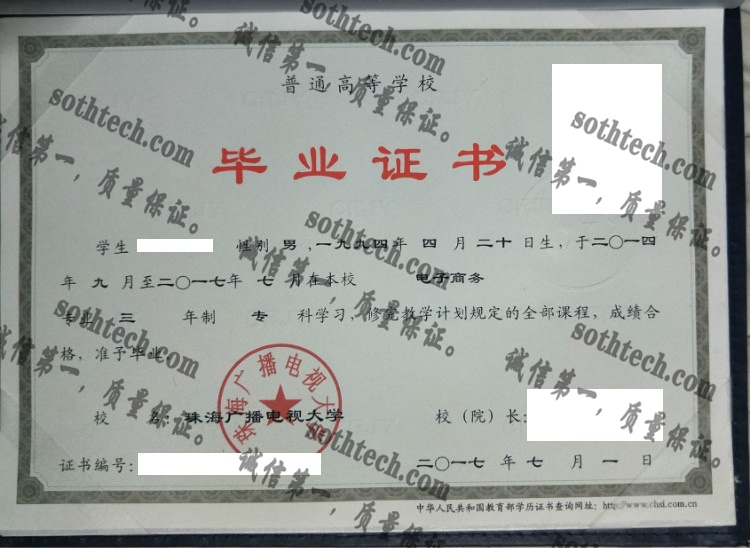 普通高等学校
毕业证书
学生 性别 男,一九九四年 四 月 二十 日生,于二〇一四
年 九 月至二〇一七年 七 月在本校 电子商务
专业 三 年制 专 科学习,修完教学计划规定的全部课程,成绩合
格,准予毕业。
珠海广播电视大学
校 名:珠海广播电视大学 校(院)长:
证书编号: 二〇一七 年 七 月 一 日
中华人民共和国教育部学历证书查询网址:http://www.chsi.com.cn
sothtech.com
诚信第一,质量保证。
sothtech.com
诚信第一,质量保证。
sothtech.com
诚信第一,质量保证。
sothtech.com
诚信第一,质量保证。
sothtech.com
诚信第一,质量保证。
sothtech.com
诚信第一,质量保证。
sothtech.com
诚信第一,质量保证。
sothtech.com
诚信第一,质量保证。